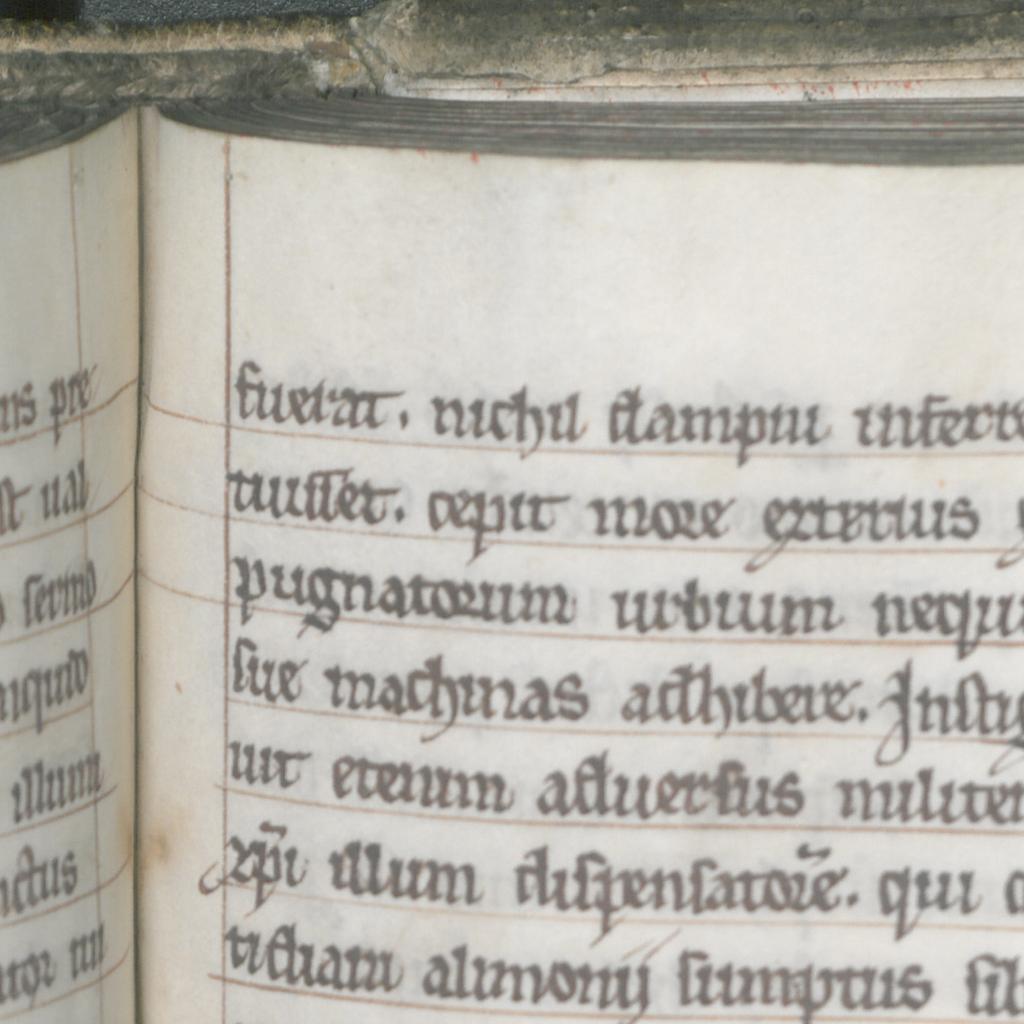 ns pre
st ual
serind
niquid
illum
nctus
ator nu
fuerat. nichil dampni inferre
tuisset. cepit more exterius
pugnatorum urbium nequi
sue machinas adhibere. Insti
uit etenim aduersus militem
xp̄i illum dispensatorē. qui
tidiani alimonij sumptus sib